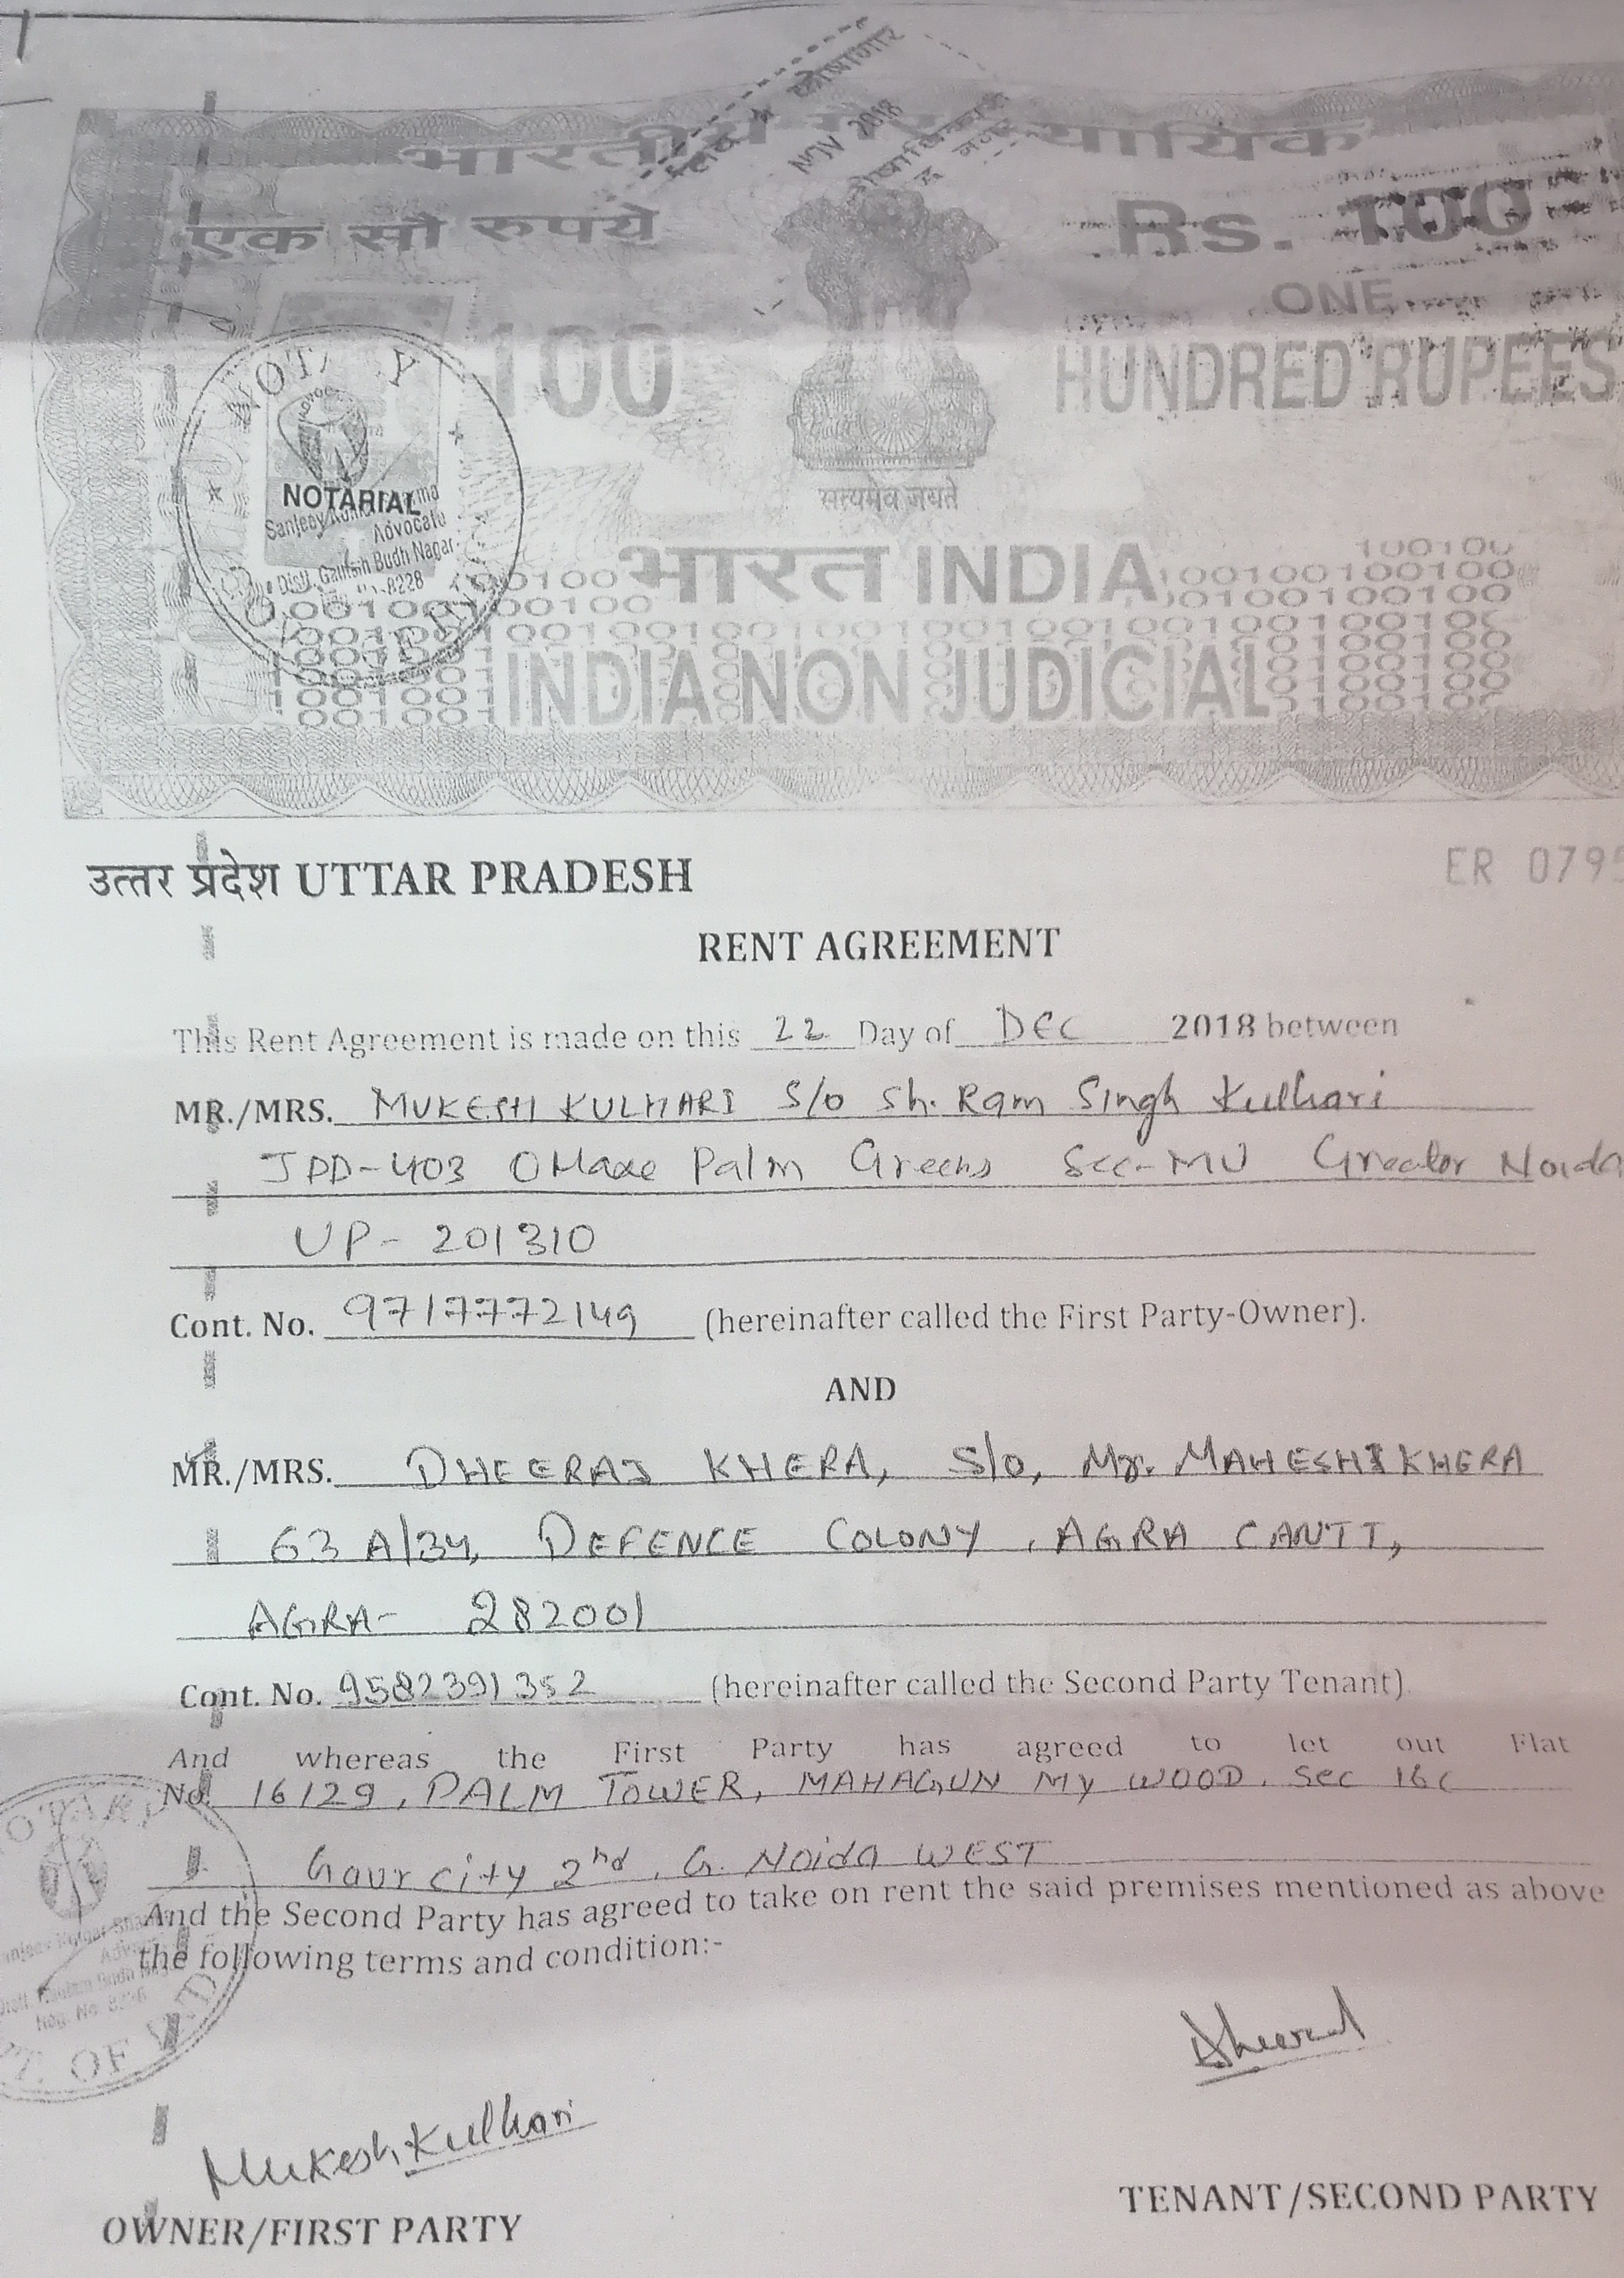 भारतीय गैर न्यायिक
NOV 2018
एक सौ रुपये
Rs. 100
ONE
100
HUNDRED RUPEES
NOTARY
NOTARIAL
Advocate
Distt. Gautam Budh Nagar
सत्यमेव जयते
भारत INDIA
INDIA NON JUDICIAL
उत्तर प्रदेश UTTAR PRADESH
ER 0795
RENT AGREEMENT
This Rent Agreement is made on this 22 Day of DEC 2018 between
MR./MRS. MUKESH KULHARI S/o Sh. Ram Singh Kulhari
JPD-403 Omaxe Palm Greens Sec-MU Greater Noida
UP- 201310
Cont. No. 9717772149 (hereinafter called the First Party-Owner).
AND
MR./MRS. DHEERAJ KHERA, S/o, Mr. MAHESH KHERA
63 A/34, DEFENCE COLONY, AGRA CANTT,
AGRA- 282001
Cont. No. 9582391352 (hereinafter called the Second Party Tenant)
And whereas the First Party has agreed to let out Flat
No. 16129, PALM TOWER, MAHAGUN My WOOD, Sec 16C
Gaur city 2nd, G. Noida WEST
And the Second Party has agreed to take on rent the said premises mentioned as above
the following terms and condition:-
Dheeraj
Mukesh Kulhari
TENANT/SECOND PARTY
OWNER/FIRST PARTY